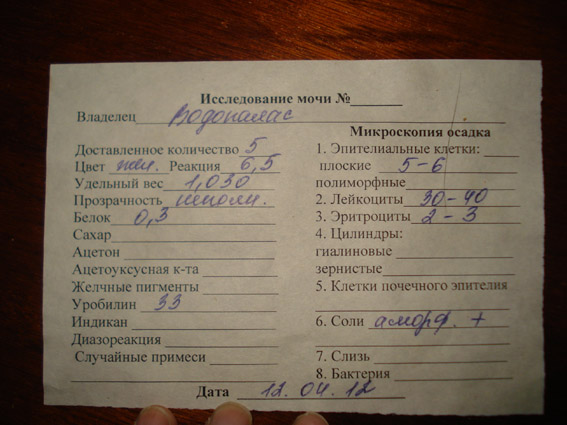 Исследование мочи №
Владелец Водопалас
Доставленное количество 5
Цвет жел. Реакция 6,5
Удельный вес 1,030
Прозрачность неполн.
Белок 0,3
Сахар
Ацетон
Ацетоуксусная к-та
Желчные пигменты
Уробилин 33
Индикан
Диазореакция
Случайные примеси
Микроскопия осадка
1. Эпителиальные клетки:
плоские 5-6
полиморфные
2. Лейкоциты 30-40
3. Эритроциты 2-3
4. Цилиндры:
гиалиновые
зернистые
5. Клетки почечного эпителия
6. Соли аморф. +
7. Слизь
8. Бактерия
Дата 12.04.12